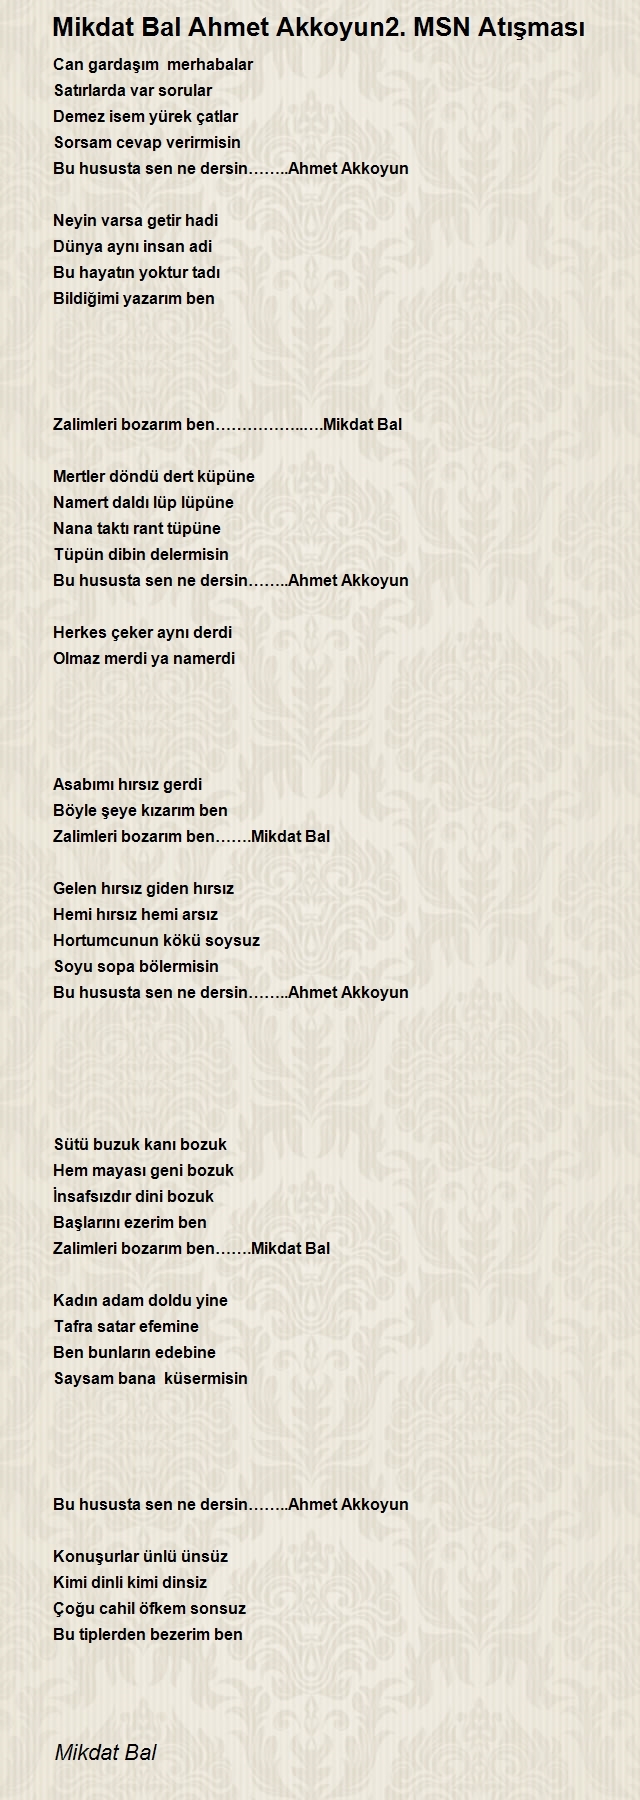 Mikdat Bal Ahmet Akkoyun2. MSN Atışması
Can gardaşım  merhabalar
Satırlarda var sorular
Demez isem yürek çatlar
Sorsam cevap verirmisin
Bu hususta sen ne dersin……..Ahmet Akkoyun
Neyin varsa getir hadi
Dünya aynı insan adi
Bu hayatın yoktur tadı
Bildiğimi yazarım ben
Zalimleri bozarım ben……………..….Mikdat Bal
Mertler döndü dert küpüne
Namert daldı lüp lüpüne
Nana taktı rant tüpüne
Tüpün dibin delermisin
Bu hususta sen ne dersin……..Ahmet Akkoyun
Herkes çeker aynı derdi
Olmaz merdi ya namerdi
Asabımı hırsız gerdi
Böyle şeye kızarım ben
Zalimleri bozarım ben…….Mikdat Bal
Gelen hırsız giden hırsız
Hemi hırsız hemi arsız
Hortumcunun kökü soysuz
Soyu sopa bölermisin
Bu hususta sen ne dersin……..Ahmet Akkoyun
Sütü buzuk kanı bozuk
Hem mayası geni bozuk
İnsafsızdır dini bozuk
Başlarını ezerim ben
Zalimleri bozarım ben…….Mikdat Bal
Kadın adam doldu yine
Tafra satar efemine
Ben bunların edebine
Saysam bana  küsermisin
Bu hususta sen ne dersin……..Ahmet Akkoyun
Konuşurlar ünlü ünsüz
Kimi dinli kimi dinsiz
Çoğu cahil öfkem sonsuz
Bu tiplerden bezerim ben
Mikdat Bal